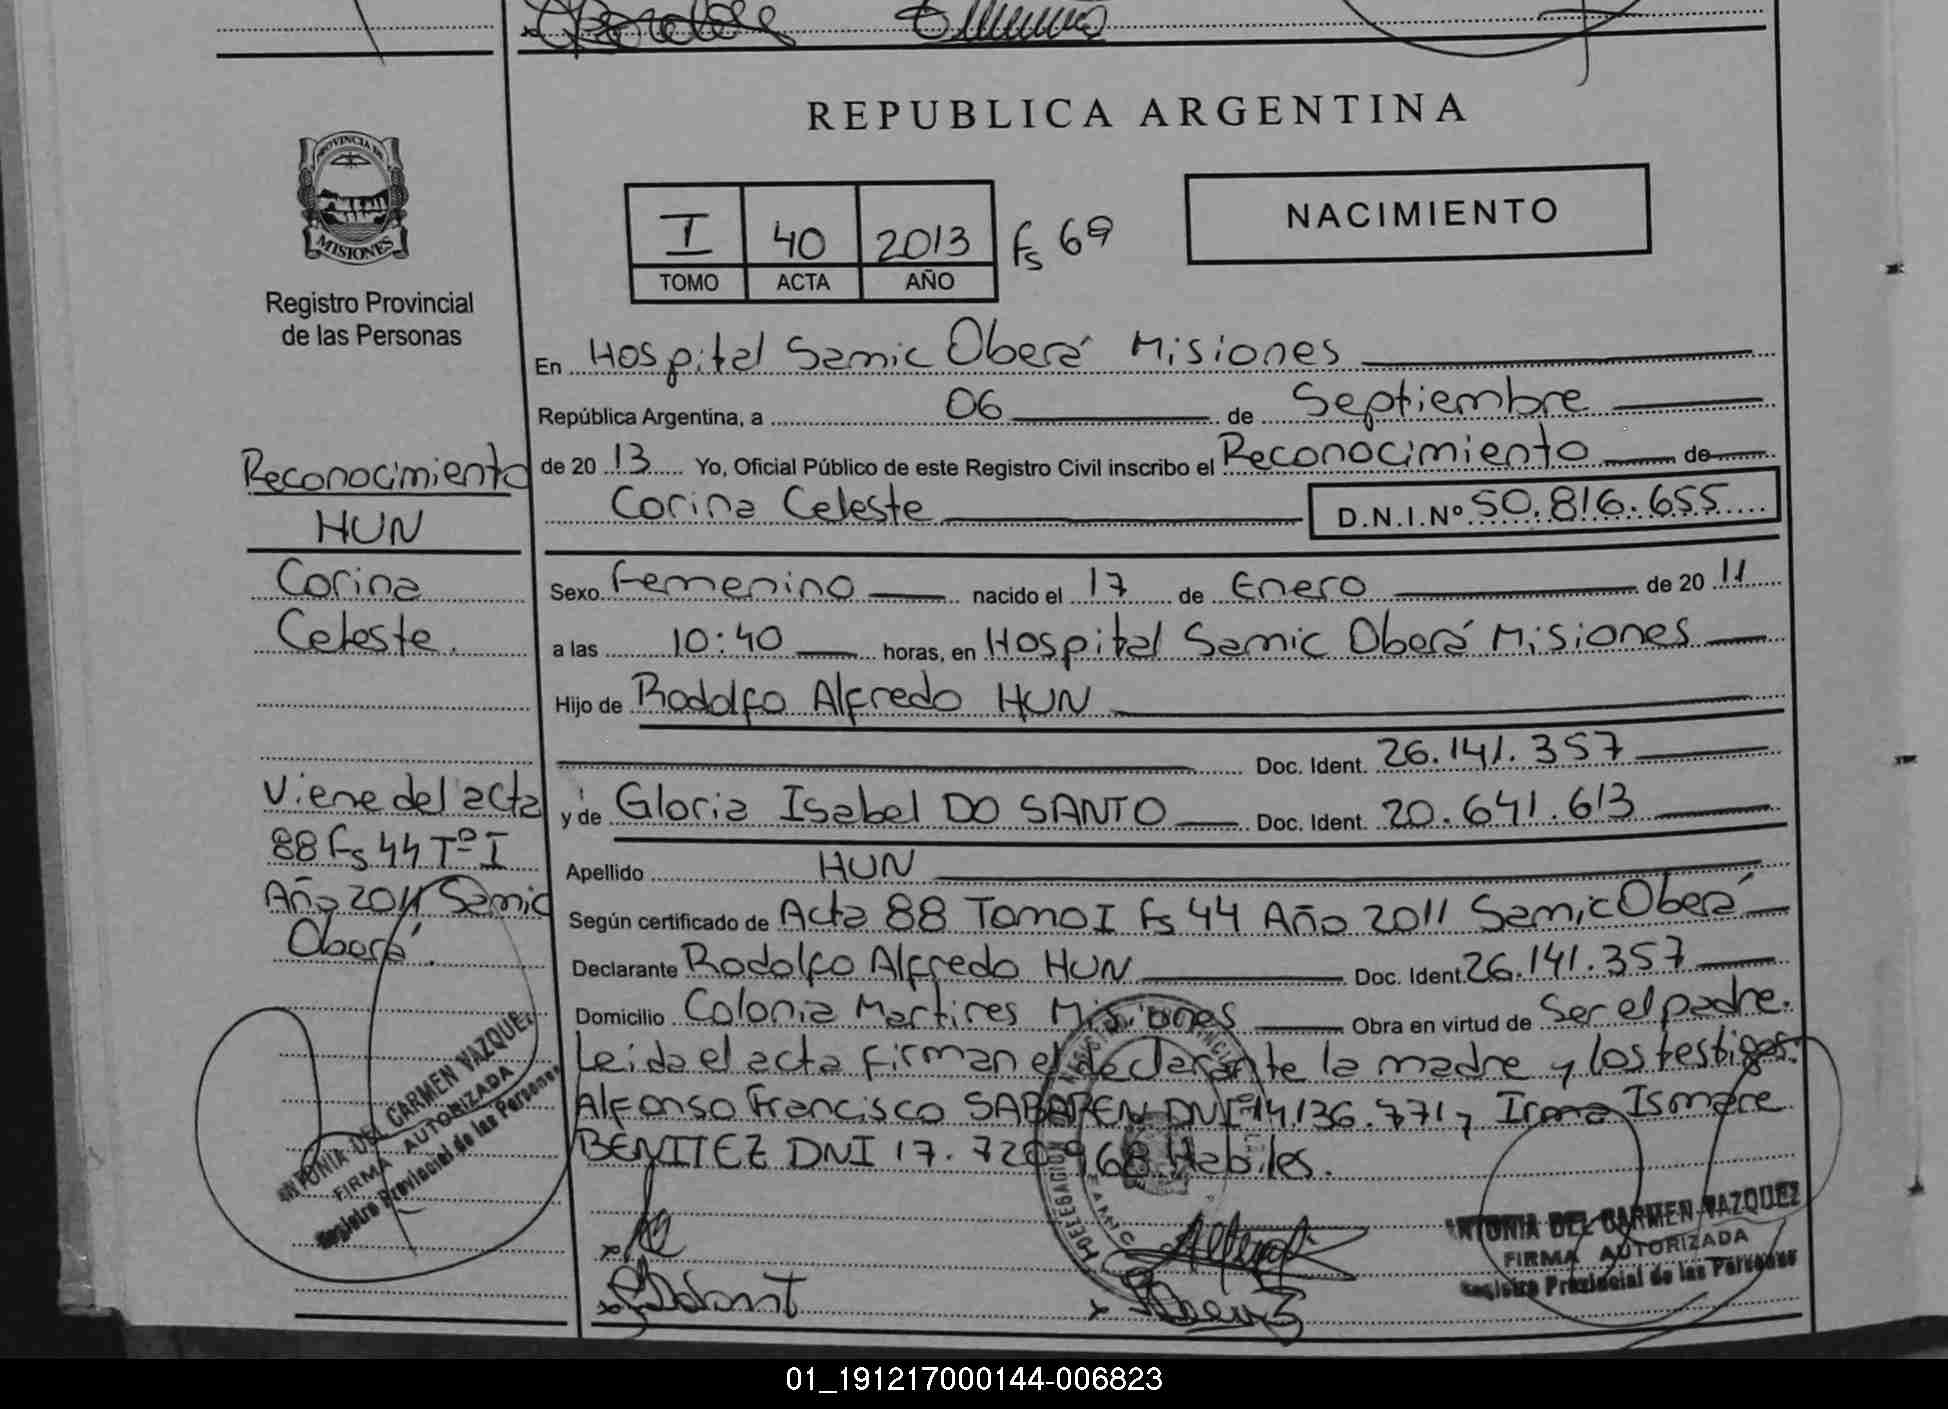 REPUBLICA ARGENTINA
PROVINCIA DE
MISIONES
Registro Provincial
de las Personas
I 40 2013 Fs 69
TOMO ACTA AÑO
NACIMIENTO
En Hospital Samic Oberá Misiones
República Argentina, a 06 de Septiembre
de 20 13 Yo, Oficial Público de este Registro Civil inscribo el Reconocimiento de
Corina Celeste D.N.I.Nº 50.816.655
Sexo Femenino nacido el 17 de Enero de 20 11
a las 10:40 horas, en Hospital Samic Oberá Misiones
Hijo de Rodolfo Alfredo HUN
Doc. Ident. 26.141.357
y de Gloria Isabel DO SANTO Doc. Ident. 20.641.613
Apellido HUN
Según certificado de Acta 88 Tomo I Fs 44 Año 2011 Samic Oberá
Declarante Rodolfo Alfredo HUN Doc. Ident. 26.141.357
Domicilio Colonia Martires Misiones Obra en virtud de Ser el padre.
Leida el acta firman el declarante la madre y los testigos.
Alfonso Francisco DNI 14.136.771, Irma Ismare
BENITEZ DNI 17.720968 Habiles.
Reconocimiento
HUN
Corina
Celeste.
Viene del acta
88 Fs 44 Tº I
Año 2011 Samic
Oberá.
ANTONIA DEL CARMEN VAZQUEZ
FIRMA AUTORIZADA
Registro Provincial de las Personas
ANTONIA DEL CARMEN VAZQUEZ
FIRMA AUTORIZADA
Registro Provincial de las Personas
01_191217000144-006823